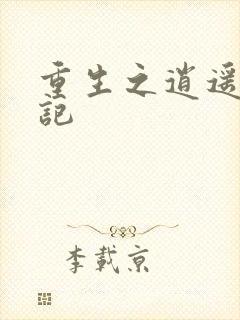 重生之逍遥
記
李載京